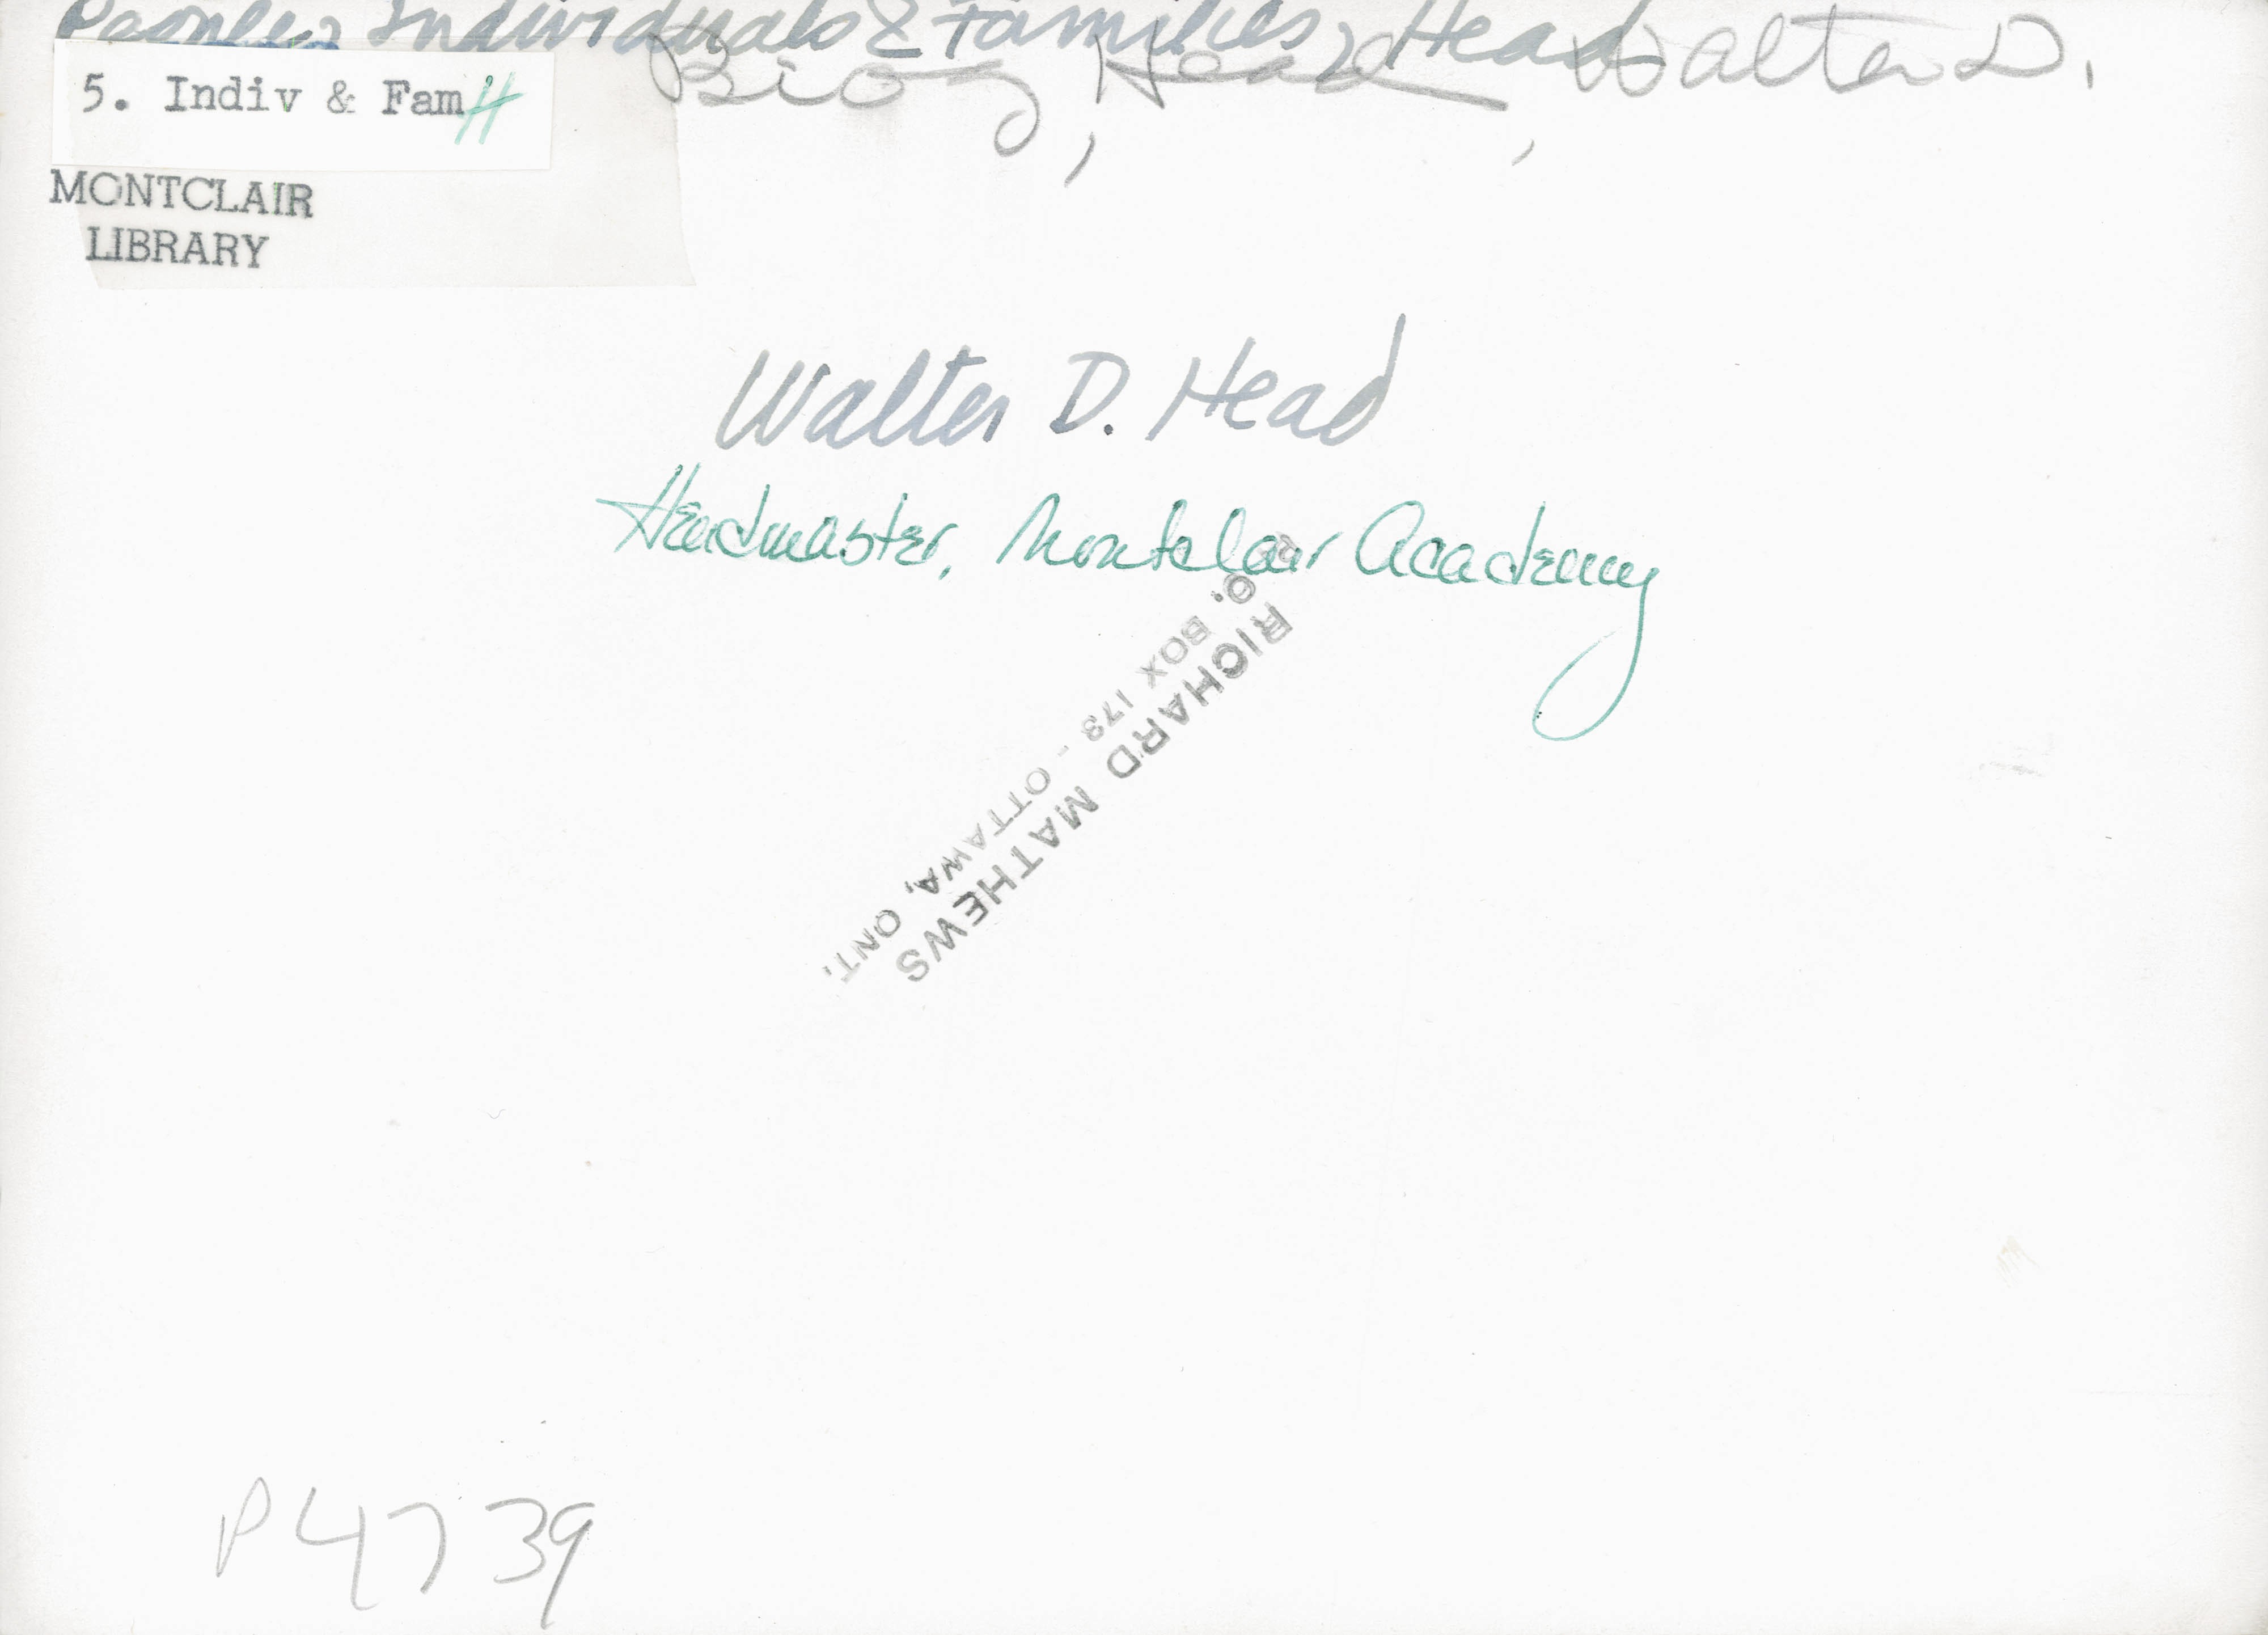 People, Individuals & Families, Head
Biog, Head, Walter D.
5. Indiv & Fam H
MONTCLAIR
LIBRARY
Walter D. Head
Headmaster, Montclair Academy
RICHARD MATHEWS
P. O. BOX 178 - OTTAWA, ONT.
P4739